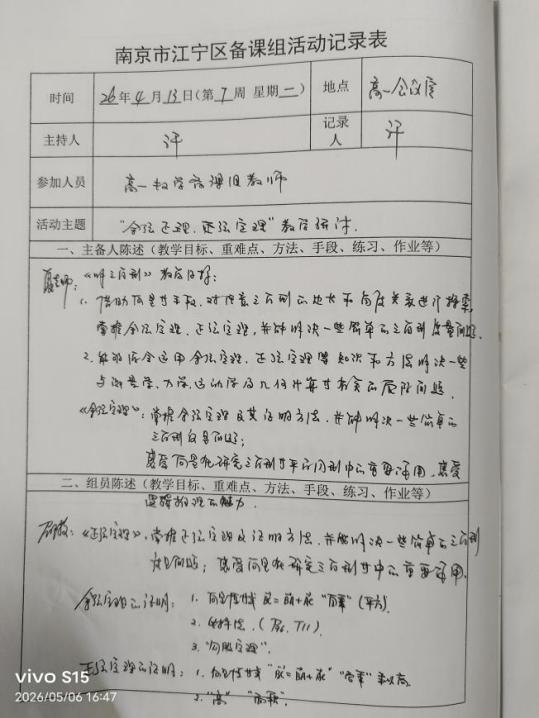 南京市江宁区备课组活动记录表
时间 26年4月13日(第7周 星期一) 地点 高一会议室
主持人 汗 记录人 汗
参加人员 高一数学备课组教师
活动主题 "余弦定理、正弦定理"教学研讨.
一、主备人陈述（教学目标、重难点、方法、手段、练习、作业等）
老师:《解三角形》教学目标:
1. 借助向量运算,对任意三角形的边长和角度关系进行探索,
掌握余弦定理、正弦定理,并能解决一些简单的三角形度量问题.
2. 能够综合运用余弦定理、正弦定理等知识和方法解决一些
与测量学、力学、运动学及几何计算等有关的实际问题.
《余弦定理》:掌握余弦定理及其证明方法,并能解决一些简单的
三角形度量问题;
感受向量在研究三角形中的重要作用,感受
二、组员陈述（教学目标、重难点、方法、手段、练习、作业等）
逻辑推理的魅力.
《正弦定理》,掌握正弦定理及证明方法,并能解决一些简单的三角形
度量问题;感受向量在研究三角形中的重要作用.
余弦定理的证明: 1. 向量 "(平方)
2.
3. "勾股定理".
正弦定理的证明: 1. 向量
2. "高" "面积"
vivo S15
2026/05/06 16:47